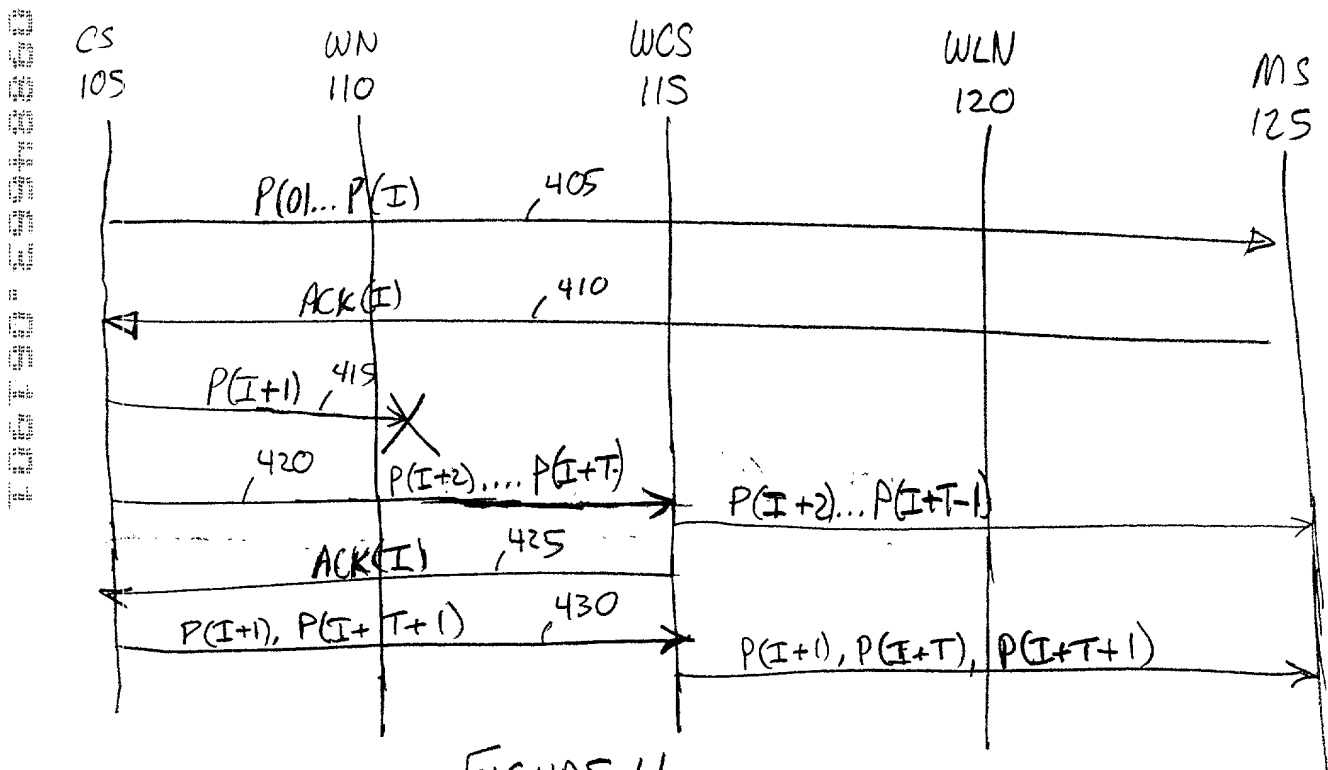 CS WN WCS WLN MS
105 110 115 120 125
P(0)... P(I) 405
ACK(I) 410
P(I+1) 415
420 P(I+2).... P(I+T) P(I+2)... P(I+T-1)
ACK(I) 425
P(I+1), P(I+T+1) 430 P(I+1), P(I+T), P(I+T+1)